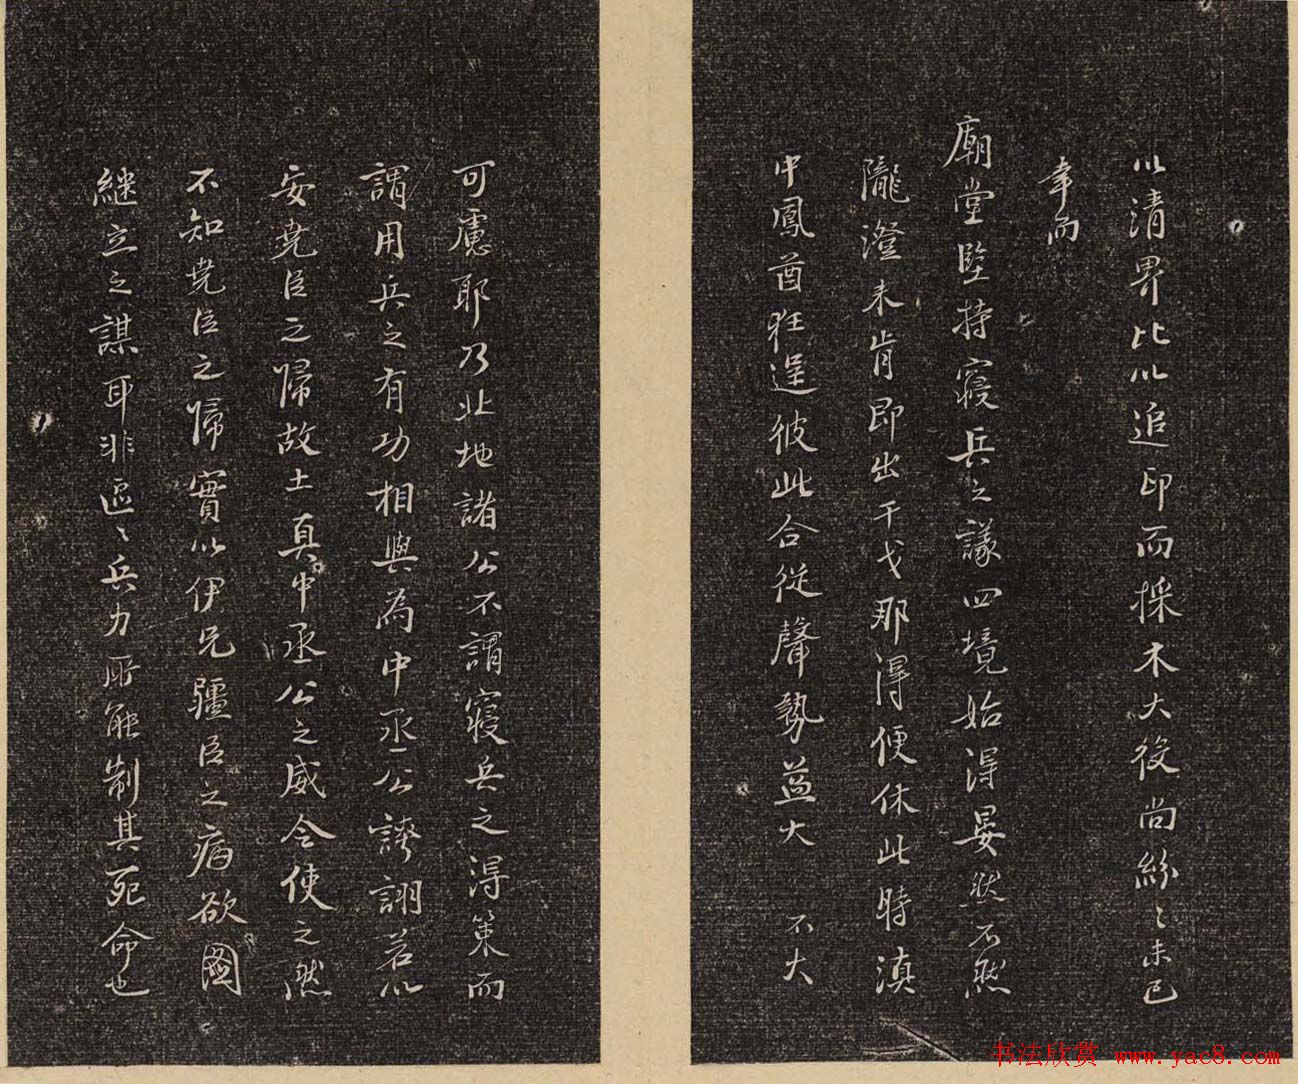 以清界比以追印而採木大役尚絲〻未已
幸而
廟堂堅持寢兵之議四境始得晏然不然
隴澄未肯即出干戈那得便休此時滇
中鳳酋狂逞彼此合從聲勢益大 不大
可慮耶乃此地諸公不謂寢兵之得策而
謂用兵之有功相與為中丞公誇詡若以
安堯臣之歸故土真中丞公之威令使之然
不知堯臣之歸實以伊兄疆臣之病欲圖
繼立之謀耳非區〻兵力所能制其死命也
书法欣赏 www.yac8.com